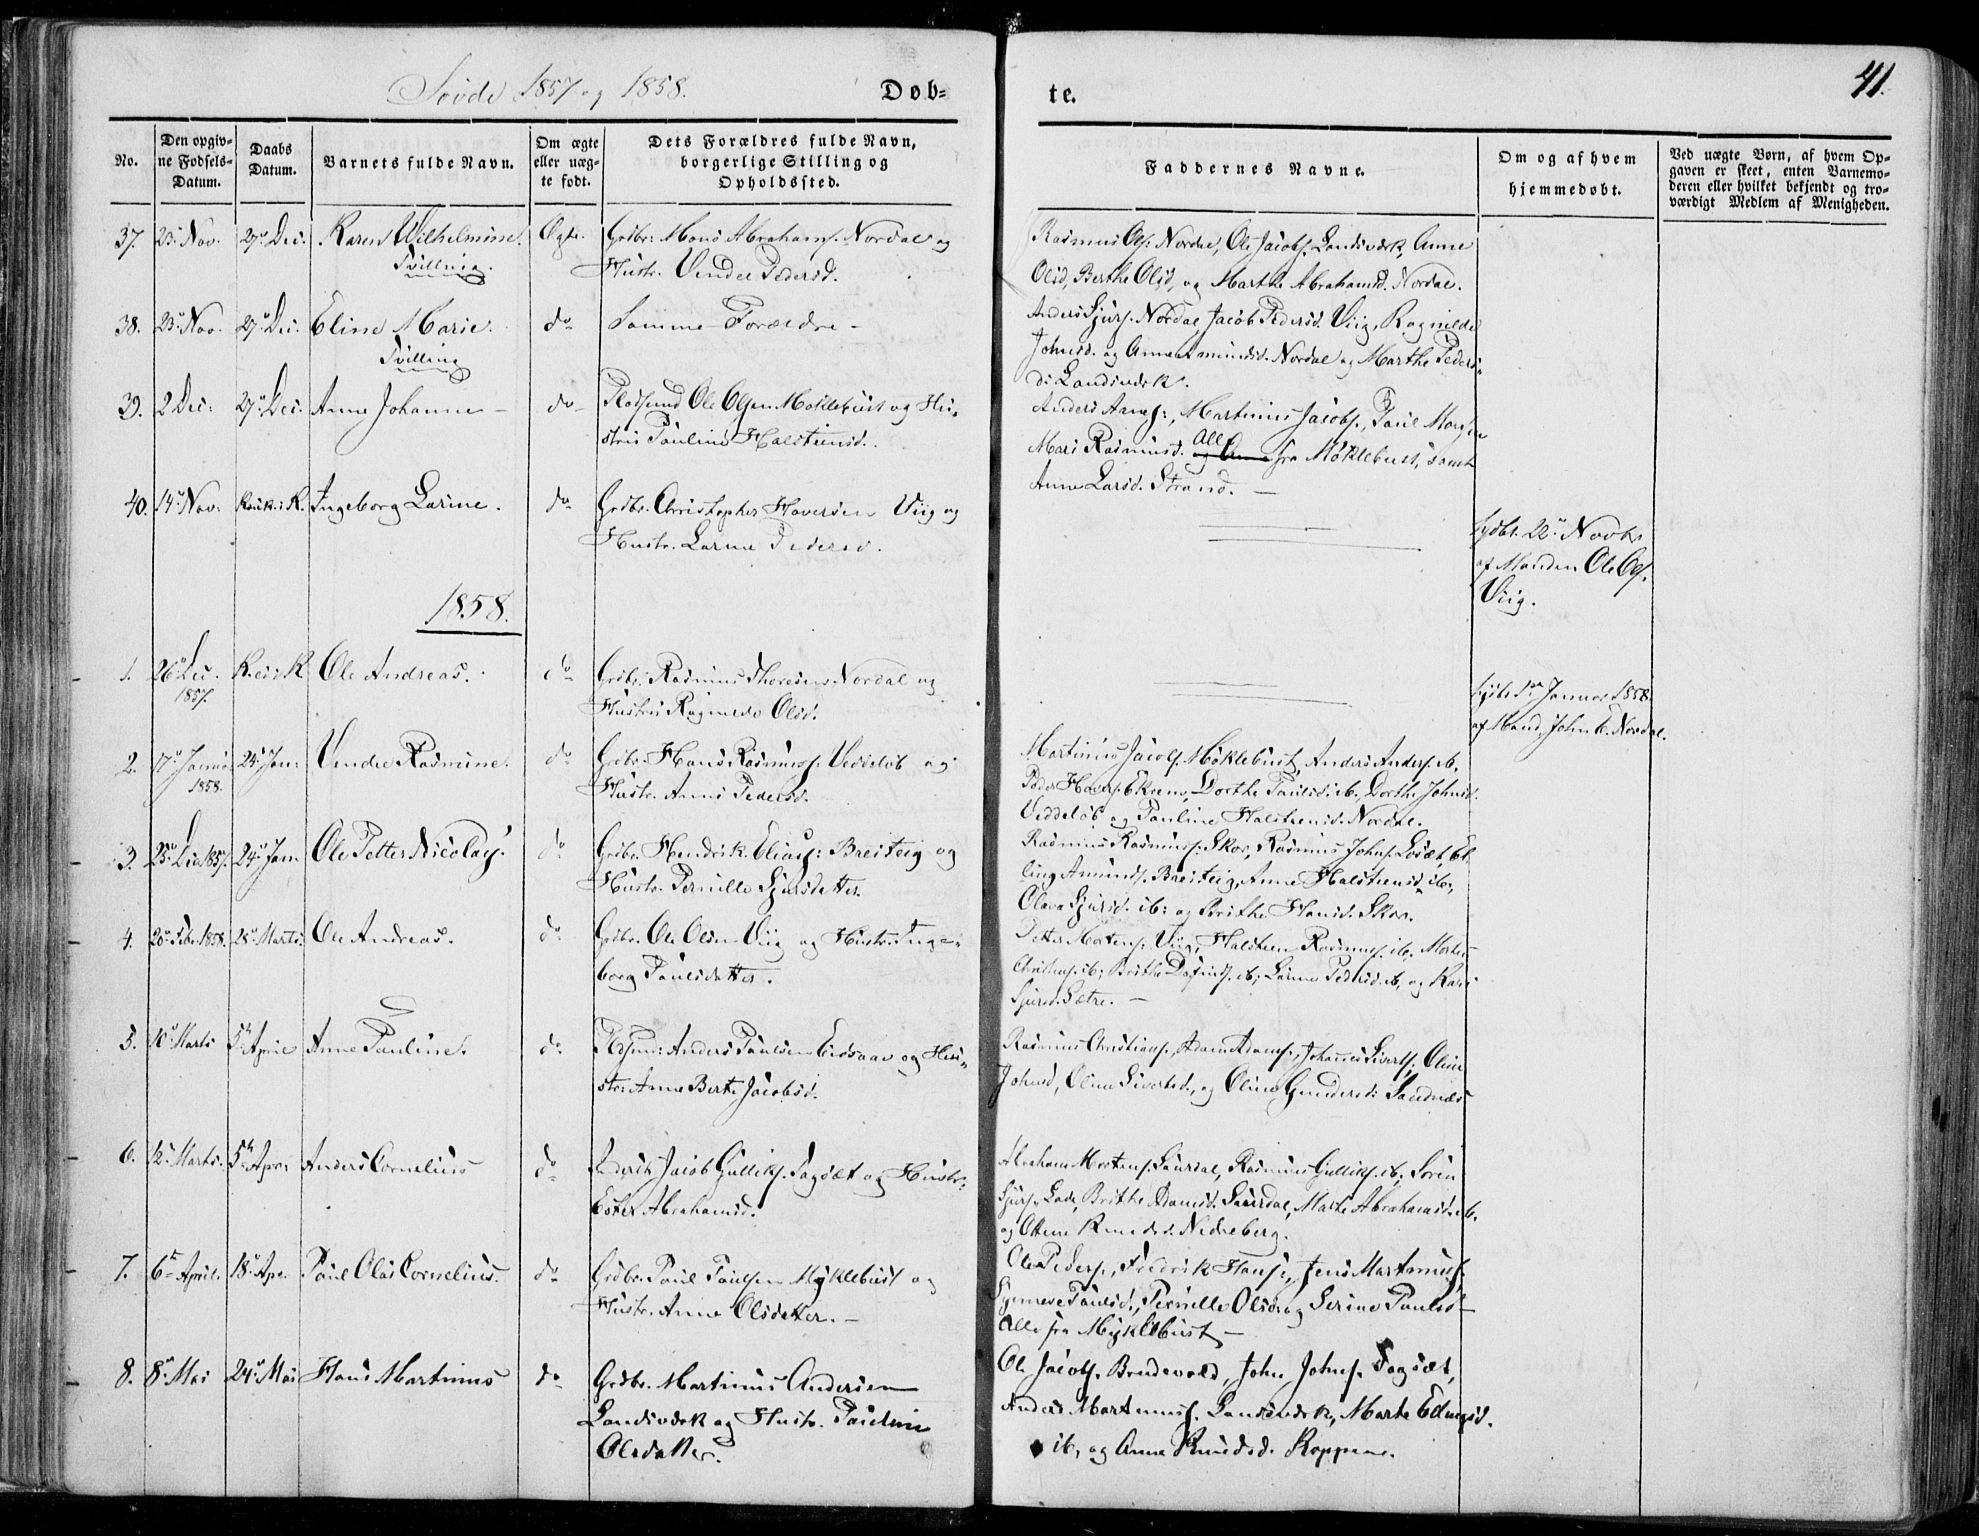 Søvde 1857 og 1858.
Døb-
te.
41.
No.
Den opgiv-
ne Fødsels-
Datum.
Daabs
Datum.
Barnets fulde Navn.
Om ægte
eller uæg-
te født.
Dets Forældres fulde Navn,
borgerlige Stilling og
Opholdssted.
Faddernes Navne.
Om og af hvem
hjemmedøbt.
Ved uægte Børn, af hvem Op-
gaven er skeet, enten Barnemo-
deren eller hvilket bekjendt og tro-
værdigt Medlem af Menigheden.
37. 23 Nov. 27 Dec. Karen Wilhelmine. Ægte. Grdbr: Mons Abrahams. Nordal og
Tvilling. Hustr. Vendel Pedersd.
Rasmus Ols. Nordal, Ole Jacobs. Landsverk, Anne
Olsd, Berthe Olsd, og Marthe Abrahamsd. Nordal.
38. 23 Nov. 27 Dec. Eline Marie. do Samme Forældre -
Tvilling
Anders Sjurs. Nordal, Jacob Pedersd. Viig, Ragnilde
Johnsd. og Anne Amundsd. Nordal og Marthe Peders-
d: Landsverk.
39. 2 Dec: 27 Dec. Anne Johanne - do Pladsmand Ole Olsen Møklebust og Hu-
strue Pauline Halsteensd.
Anders Anders:, Martinus Jacobs., Paul Mons
Mari Rasmusd. Alle fra Møklebust, samt
Anne Larsd. Strand. -
40. 14 Nov. Ingeborg Larine. do Grdbr. Christopher Haversen Viig og
Hustr. Larine Pedersd.
22 Novbr
af Manden Ole Ols.
Viig.
1858.
1. 26 Dec. Ole Andreas. do Grdbr. Rasmus Thoresen Nordal og
1857. Hustrue Ragnilde Olsd.
Januar 1858.
af Mand. John E. Nordal.
2. 17 Januar 24 Jan: Vendel Rasmine. do Grdbr. Hans Rasmuss. Veddeløb og
1858. Hustr. Anne Pedersd.
Martinus Jacobs. Møklebust, Anders Anders. ib.
Peder Havers. Ekrem, Dorthe Paulsd. ib., Dorthe Johnsd.
Veddeløb og Pauline Halsteensd. Nordal.
3. 25 Dec 1857. 24 Jan. Ole Petter Nicolay. do Grdbr. Hendrik Elias: Breiteig og
Hustr. Pernille Sjursdatter.
Rasmus Rasmuss. Skor, Rasmus Johns. Losæt, El-
ling Amunds. Breiteig, Anne Halsteensd. ib,
Olava Sjursd. ib: og Brithe Hansd. Skor.
4. 20 Febr 1858. 28 Marts. Ole Andreas. do Grdbr. Ole Olsen Viig og Hustr. Inge-
borg Paulsdatter.
Petter Mortens. Viig, Halsteen Rasmus. ib, Morten
Christens. ib; Brithe ib; Larine Pedersd. ib, og Kari
Sjursd. Sætre. -
5. 10 Marts 5 April Anne Pauline. do Pladsm: Anders Paulsen Eidsaae og Hu-
str: Anne Berte Jacobsd.
Rasmus Christians., Adam Adams., Johannes Siverts; Oline
Johnsd, Oline Sivertsd., og Oline Gundersd: Sandnæs
6. 12 Marts. 5 Apr: Anders Cornelius do Jacob Gulliks. Fagsæt og Hustr:
Ester Abrahamsd.
Abraham Mortens. Saurdal, Rasmus Gulliks. ib, Søren
Sjurs. Lade, Brithe Saurdal, Marte Abrahamsd. ib.
og Nedreberg.
7. 6 April. 18 Apr. Paul Olas Cornelius. do Grdbr. Paul Paulsen Myklebust og
Hustr. Anne Olsdatter. -
Ole Peders., Fredrik Hans., Jens Martinus.
Synneve Paulsd., Pernille Olsd. og Serine Paulsd -
Alle fra Myklebust -
8. 8 Mai 24 Mai Hans Martinus do Grdbr. Martinus Andersen
Landsverk og Hustr. Pauline
Olsdatter.
Ole Jacobs. Brudevold, John Johns. Fagsæt,
Anders Martinus. Landsverk, Marte
ib, og Anne Knudsd. Koppene.